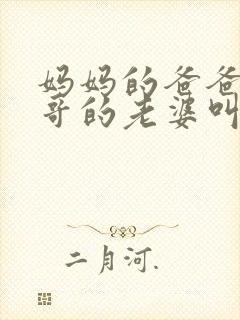 妈妈的爸爸
哥的老婆叫
二月河.